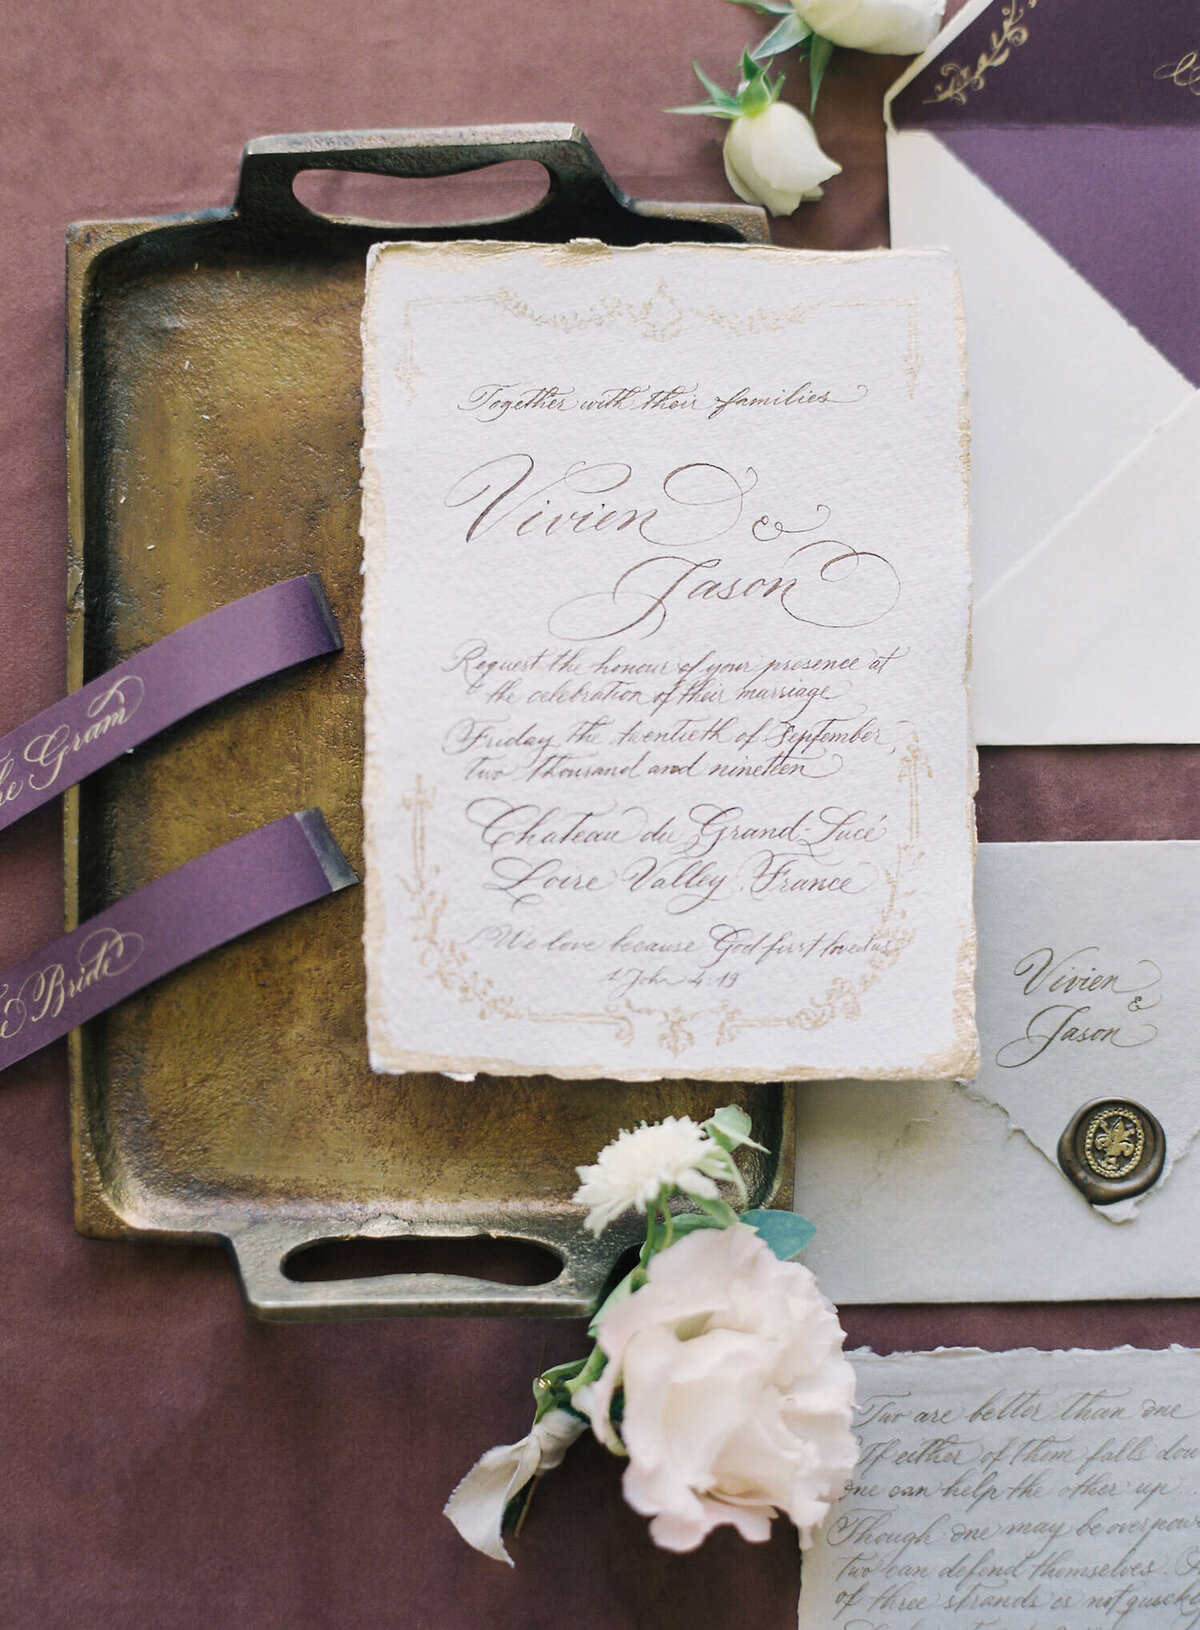 Together with their families
Vivien &
Jason
Request the honour of your presence at
the celebration of their marriage
Friday the twentieth of September,
two thousand and nineteen
Chateau du Grand-Lucé
Loire Valley, France
We love because God first loved us
1 John 4:19
Gram
Bride
Vivien
&
Jason
Two are better than one
If either of them falls
one can help the other up...
Though one may be
two can defend themselves.
of three strands is not